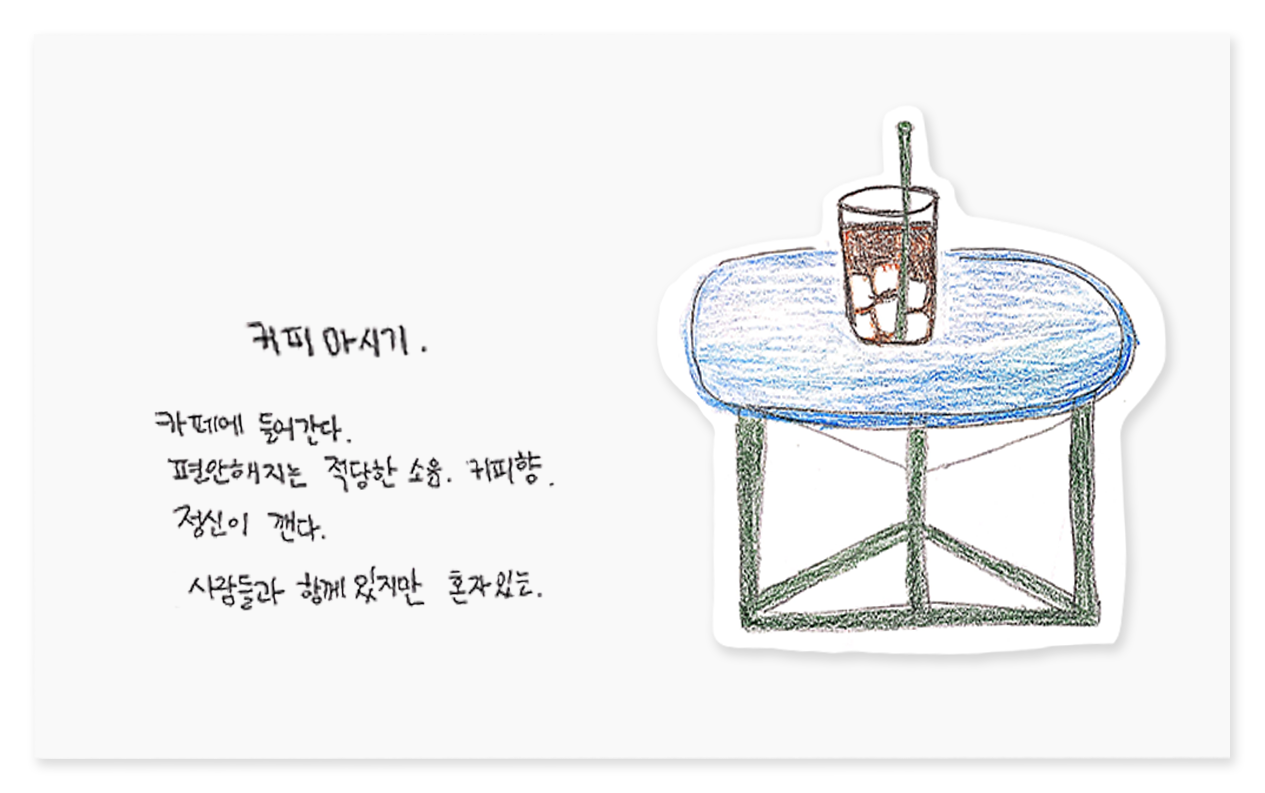 커피 마시기.
카페에 들어간다.
편안해지는 적당한 소음. 커피향.
정신이 깬다.
사람들과 함께 있지만 혼자있는.